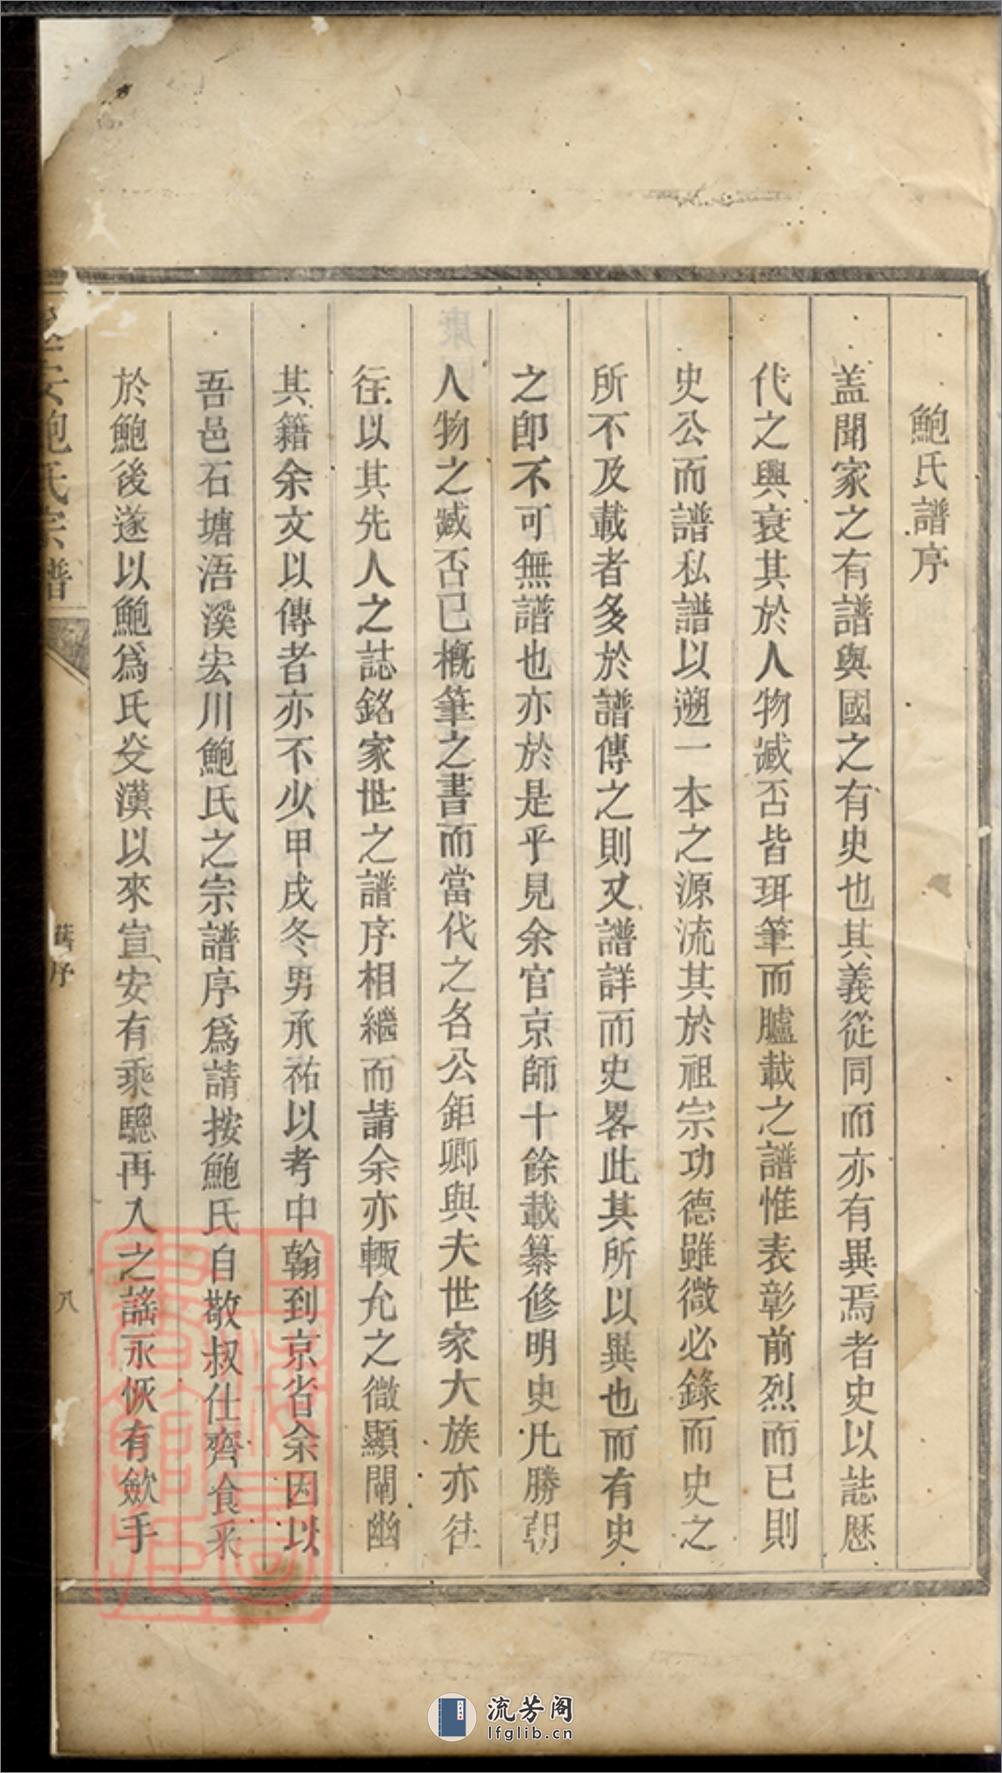 鮑氏譜序
盖聞家之有譜與國之有史也其義從同而亦有異焉者史以誌歷
代之興衰其於人物臧否皆珥筆而臚載之譜惟表彰前烈而已則
史公而譜私譜以遡一本之源流其於祖宗功德雖微必錄而史之
所不及載者多於譜傳之則又譜詳而史畧此其所以異也而有史
之卽不可無譜也亦於是乎見余官京師十餘載纂修明史凡勝朝
人物之臧否已概筆之書而當代之名公鉅卿與夫世家大族亦往
往以其先人之誌銘家世之譜序相繼而請余亦輒允之微顯闡幽
其籍余文以傳者亦不少甲戌冬男承祐以考中翰到京省余因以
吾邑石塘浯溪宏川鮑氏之宗譜序爲請按鮑氏自敬叔仕齊食采
於鮑後遂以鮑爲氏爻漢以來宣安有乘驄再入之謠永恢有歛手
安鮑氏宗譜
舊序
八
流芳阁
lfglib.cn